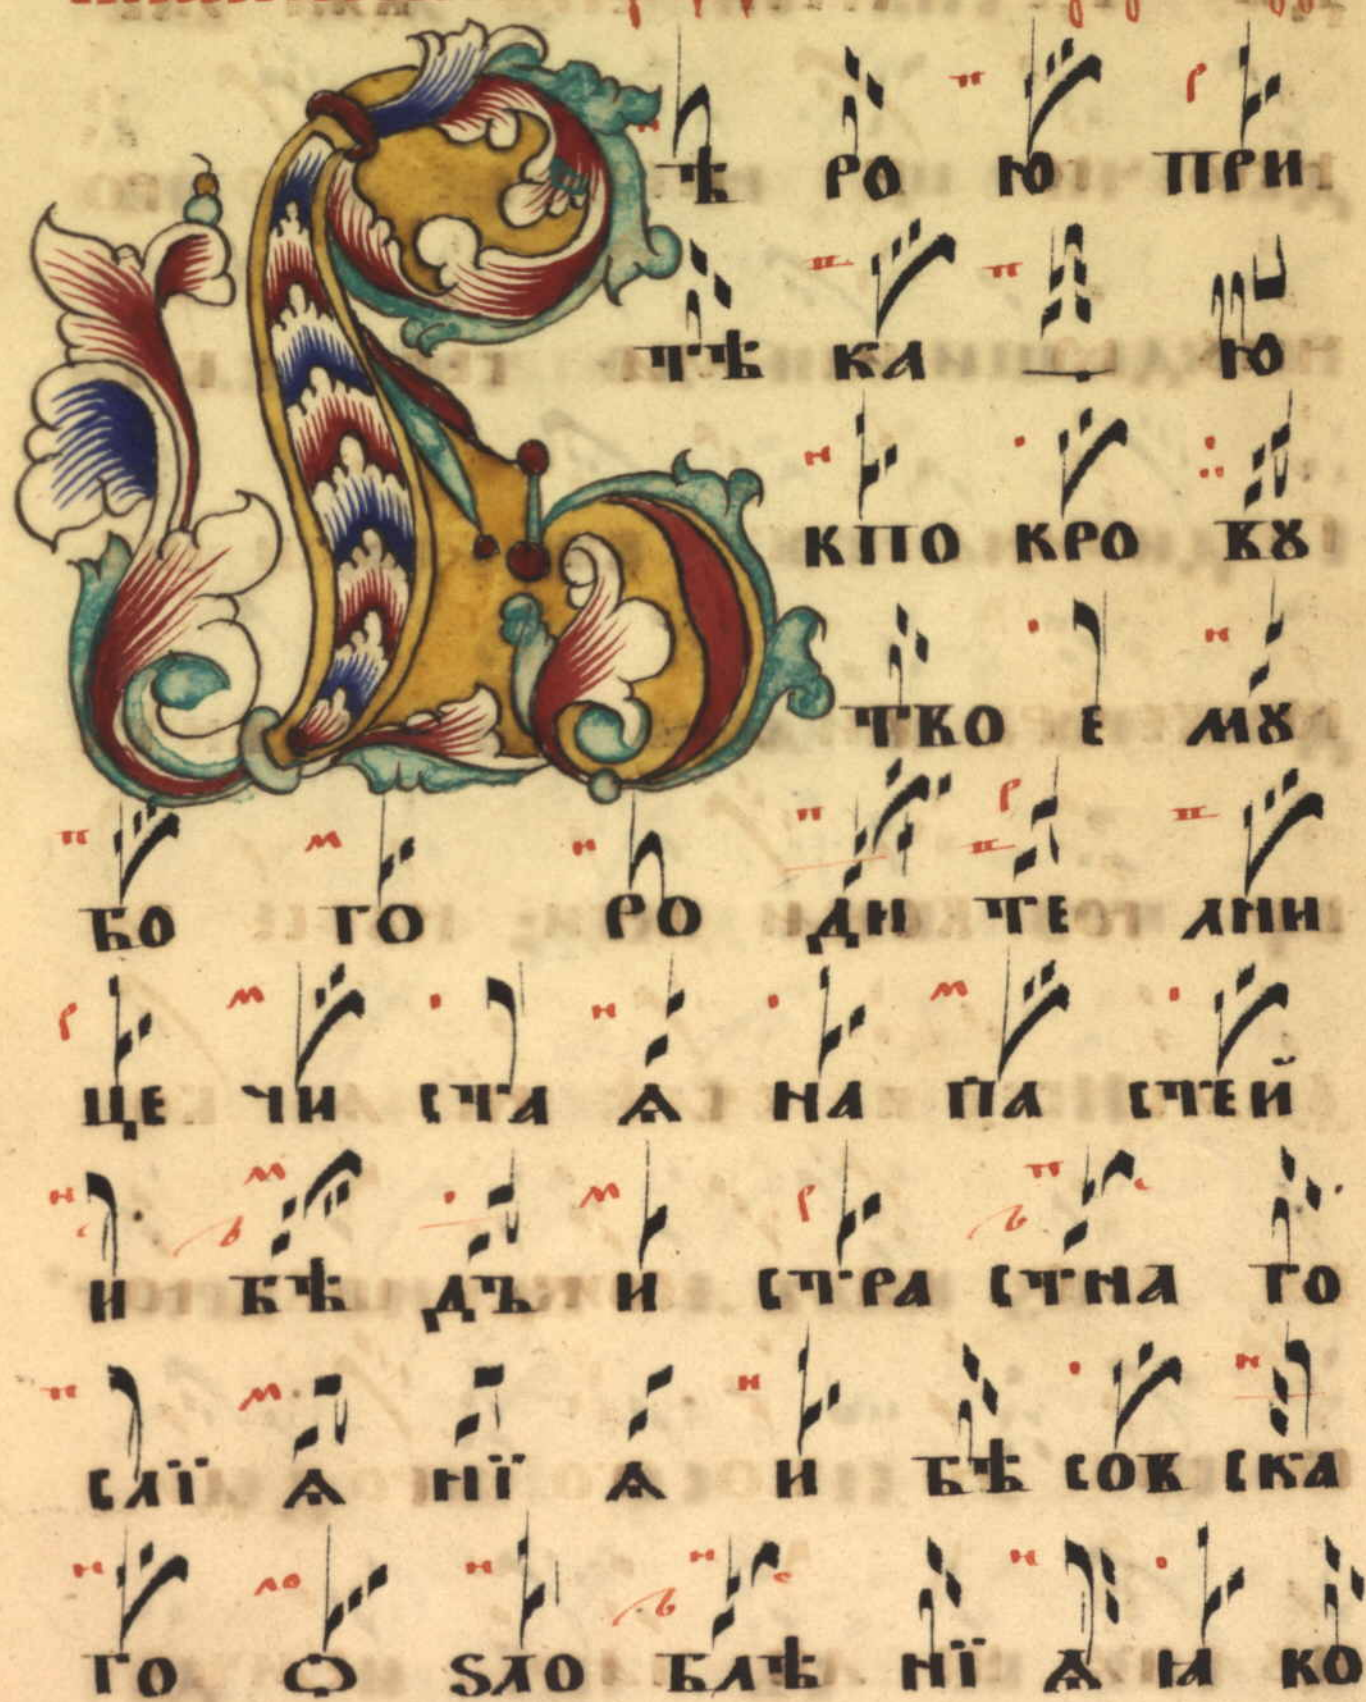 Вѣ рою при
тѣ ка ю
кпо кро вꙋ
тво е мꙋ
бо го ро ди те лни
це чи ста ѧ на па стей
и бѣ дъ и стра стна го
слїѧ нї ѧ и бѣ сов ска
го ѡ ѕло блѣ нї ѧ ꙗ ко